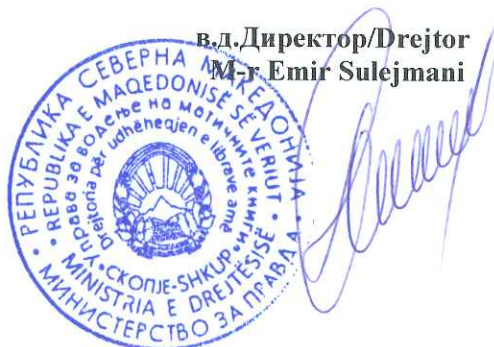 в.д.Директор/Drejtor
M-r Emir Sulejmani
РЕПУБЛИКА СЕВЕРНА МАКЕДОНИЈА
МИНИСТЕРСТВО ЗА ПРАВДА
REPUBLIKA E MAQEDONISË SË VERIUT
MINISTRIA E DREJTËSISË
Управа за водење на матичните книги
Drejtoria për udhëheqjen e librave amë
СКОПЈЕ-SHKUP